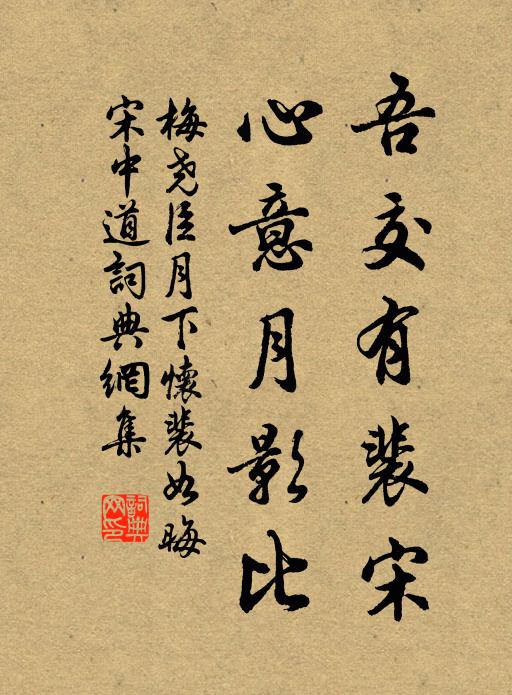 吾交有裴宋
心意月影比
梅尧臣月下懷裴如晦
宋中道詞典網集
詞典网印